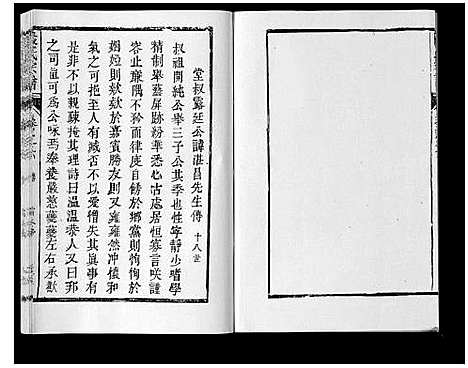 堂叔露廷公諱湛昌先生傳 十八世
叔祖開純公舉三子公其季也性寧靜少嗜學
精制舉藝屏跡粉華悉心古處居恒寡言咲謹
止廉隅不矜而律度自飭於鄉黨則恂恂於
姻婭則欵欵於嘉賓勝友則又雍雍然冲復和
氣之可挹或否不以愛憎失其真事有
是非不以親疎掩其理詩曰溫溫恭人又曰邦
之司直可為公咏焉奉養嚴慈夔夔左右承歡